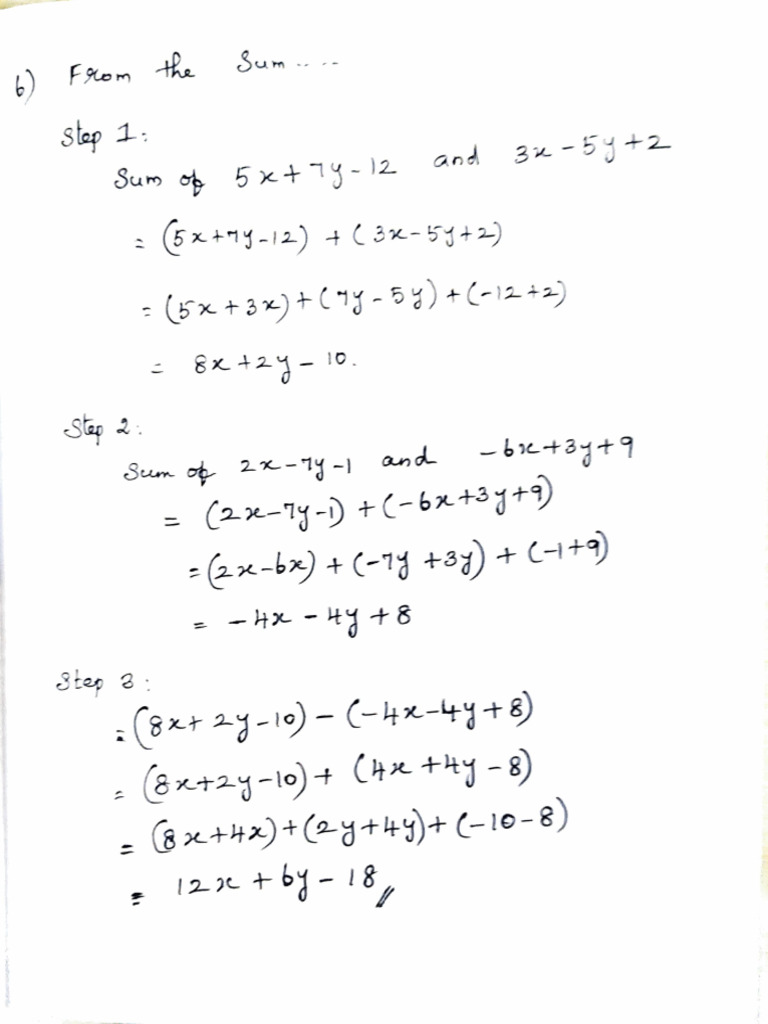 6) From the Sum.....
Step 1:
Sum of 5x+7y-12 and 3x-5y+2
= (5x+7y-12) + (3x-5y+2)
= (5x+3x)+(7y-5y)+(-12+2)
= 8x+2y-10.
Step 2:
Sum of 2x-7y-1 and -6x+3y+9
= (2x-7y-1) + (-6x+3y+9)
= (2x-6x) + (-7y+3y) + (-1+9)
= -4x-4y+8
Step 3:
= (8x+2y-10) - (-4x-4y+8)
= (8x+2y-10) + (4x+4y-8)
= (8x+4x)+(2y+4y)+(-10-8)
= 12x+6y-18//